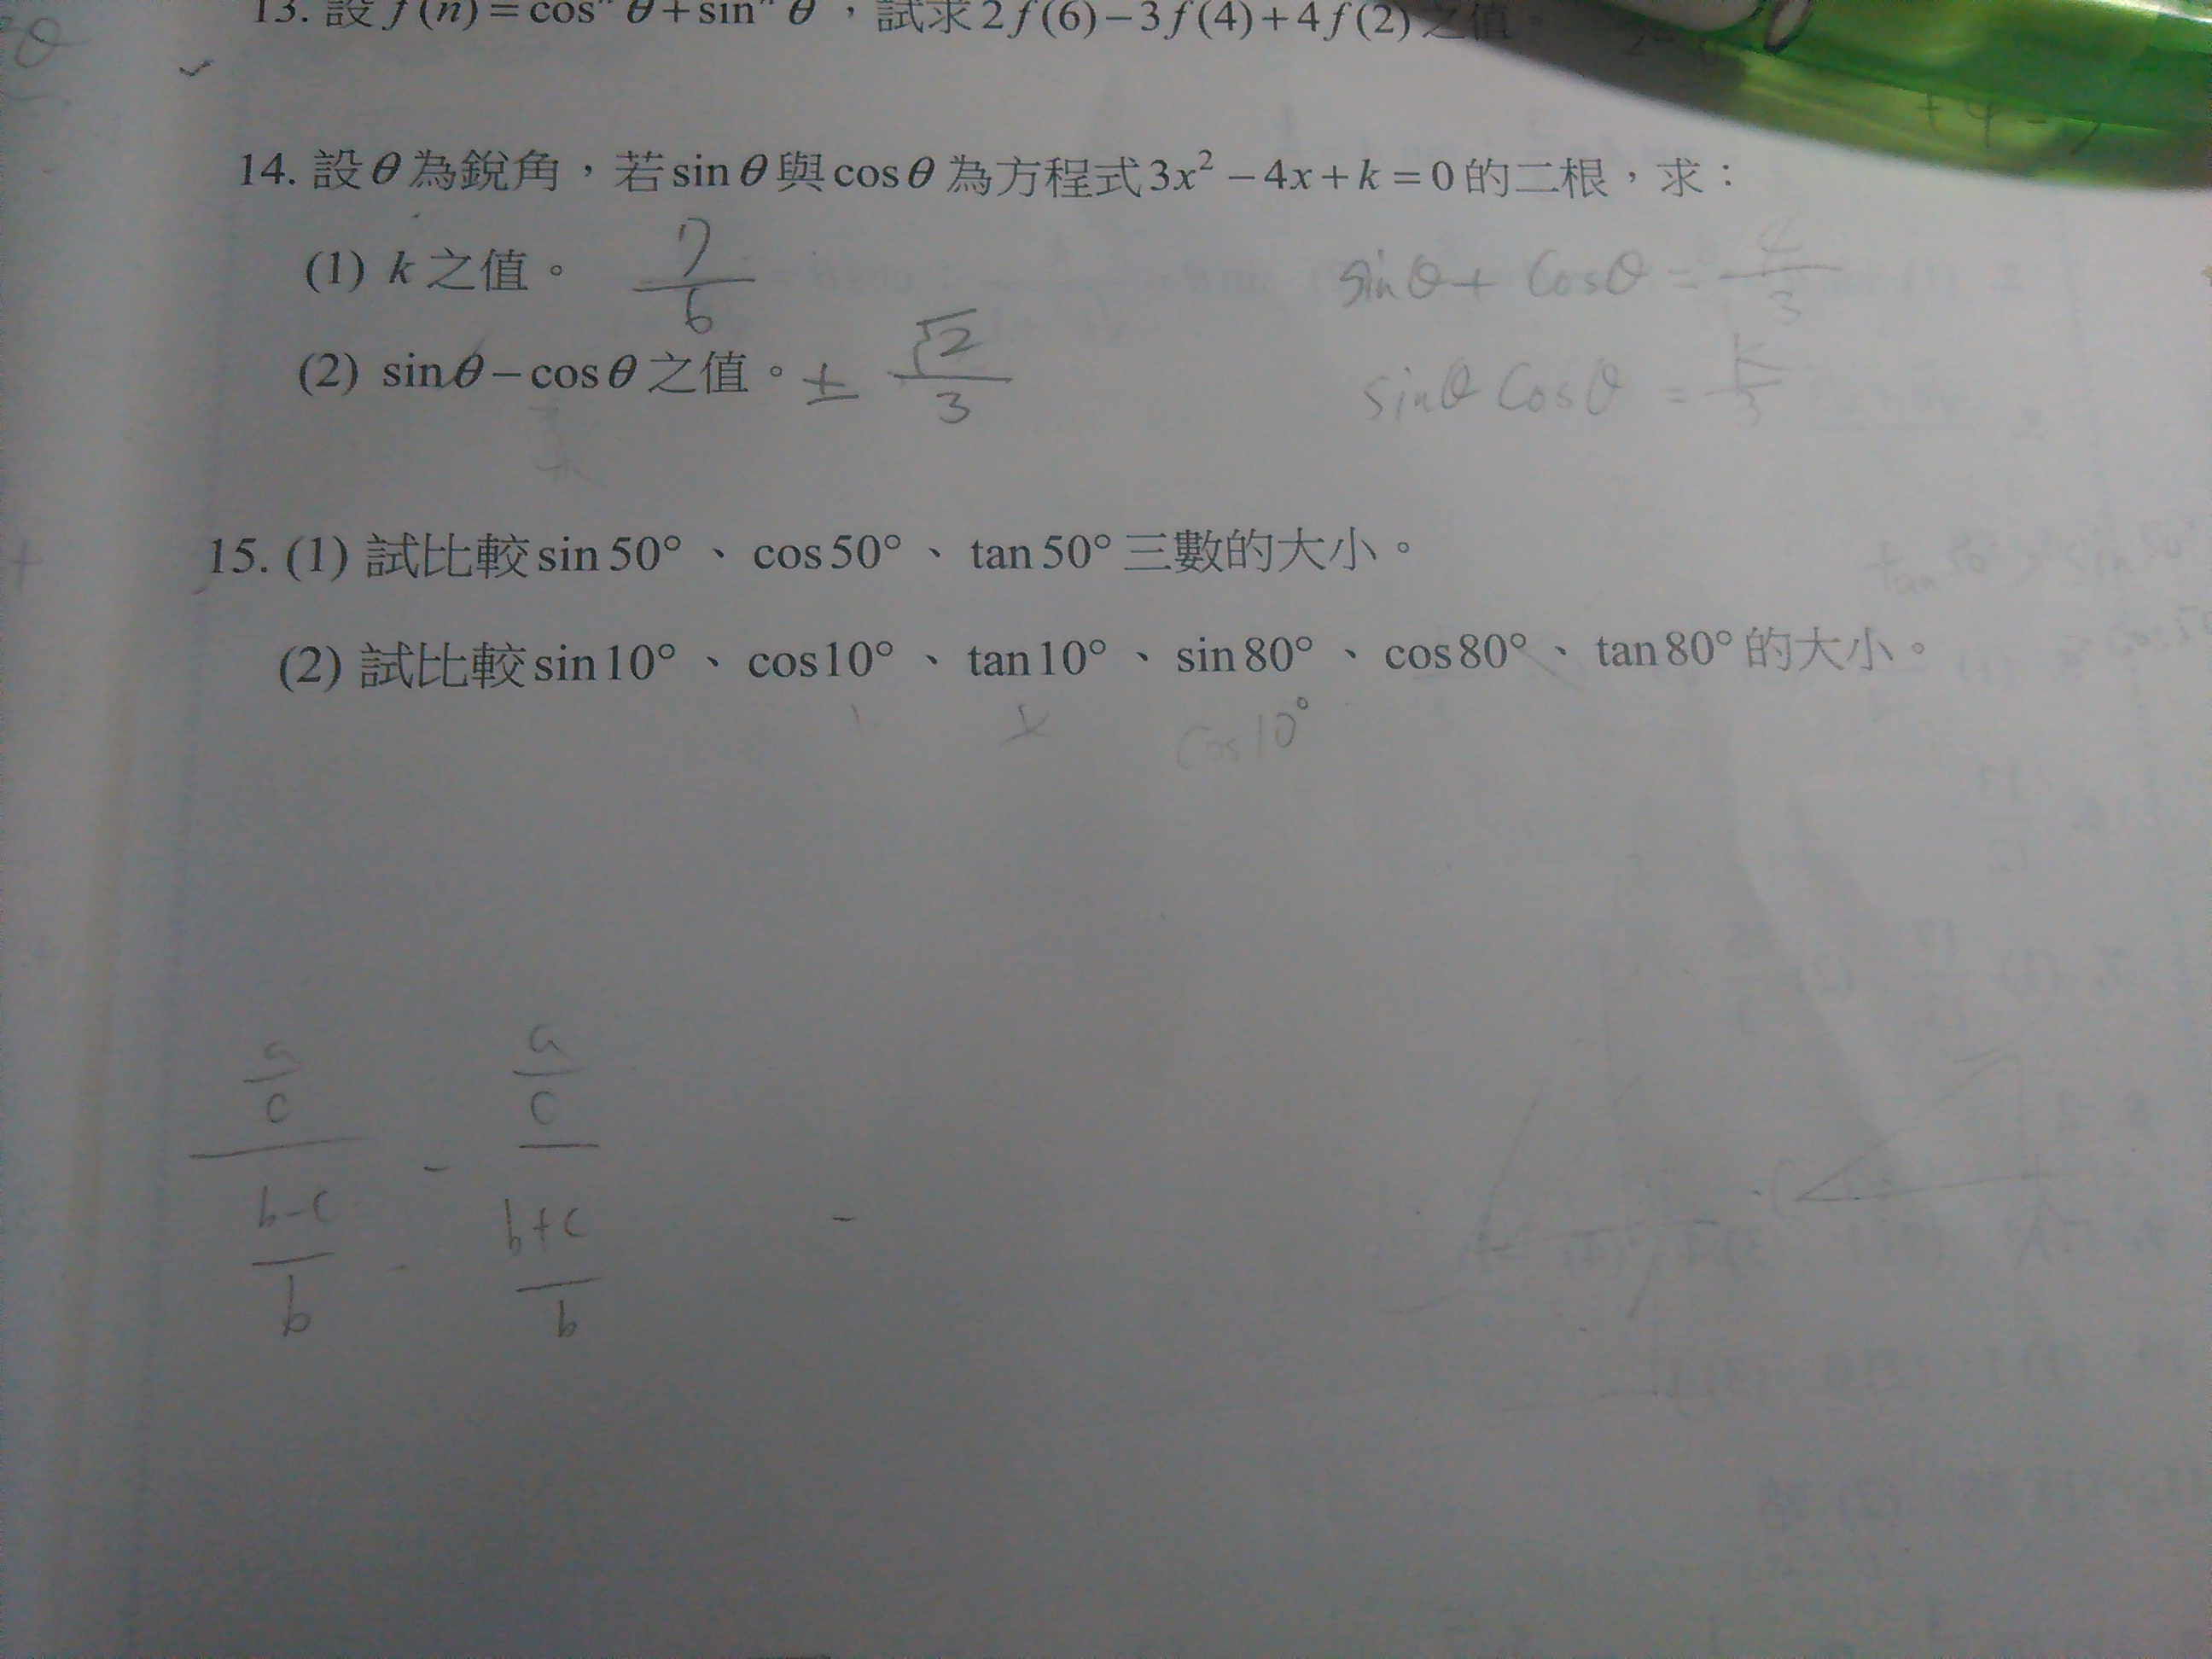 13. 設 f(n)=cosⁿθ+sinⁿθ，試求2f(6)−3f(4)+4f(2)之值。
14. 設θ為銳角，若sinθ與cosθ為方程式3x²−4x+k=0的二根，求：
(1) k之值。 7/6 sinθ+cosθ=4/3
(2) sinθ−cosθ之值。 ± √2/3 sinθ cosθ = k/3
15. (1) 試比較sin50°、cos50°、tan50°三數的大小。
(2) 試比較sin10°、cos10°、tan10°、sin80°、cos80°、tan80°的大小。
cos10°
a a
c - c
b-c b+c
b b